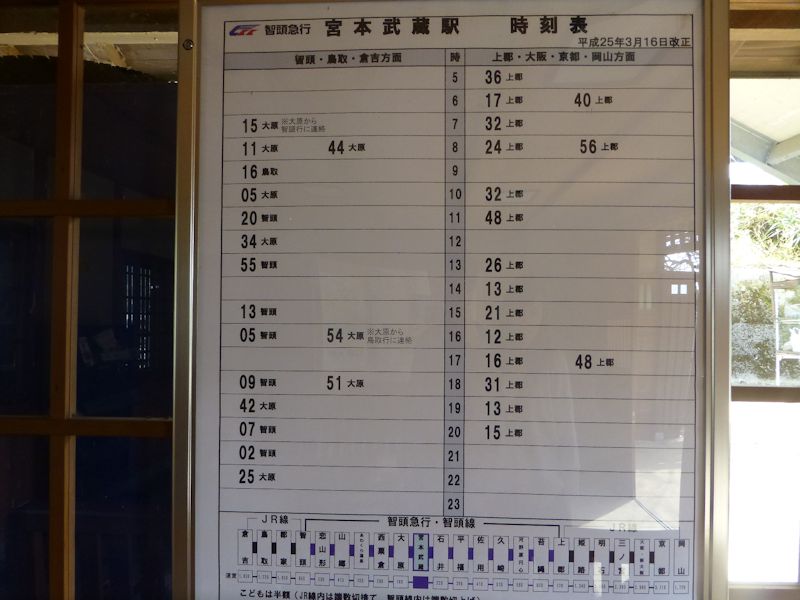 智頭急行 宮本武蔵駅 時刻表
平成25年3月16日改正
智頭・鳥取・倉吉方面 時 上郡・大阪・京都・岡山方面
5 36 上郡
6 17 上郡 40 上郡
15 大原 ※大原から智頭行に連絡 7 32 上郡
11 大原 44 大原 8 24 上郡 56 上郡
16 鳥取 9
05 大原 10 32 上郡
20 智頭 11 48 上郡
34 大原 12
55 智頭 13 26 上郡
14 13 上郡
13 智頭 15 21 上郡
05 智頭 54 大原 ※大原から鳥取行に連絡 16 12 上郡
17 16 上郡 48 上郡
09 智頭 51 大原 18 31 上郡
42 大原 19 13 上郡
07 智頭 20 15 上郡
02 智頭 21
25 大原 22
23
JR線 智頭急行・智頭線 JR線
倉吉 鳥取 郡家 智頭 恋山形 山郷 あわくら温泉 西粟倉 大原 宮本武蔵 石井 平福 佐用 久崎 河野原円心 苔縄 上郡 姫路 明石 三ノ宮 大阪・新大阪 京都 岡山
運賃
こどもは半額(JR線内は端数切捨て、智頭線内は端数切上げ)